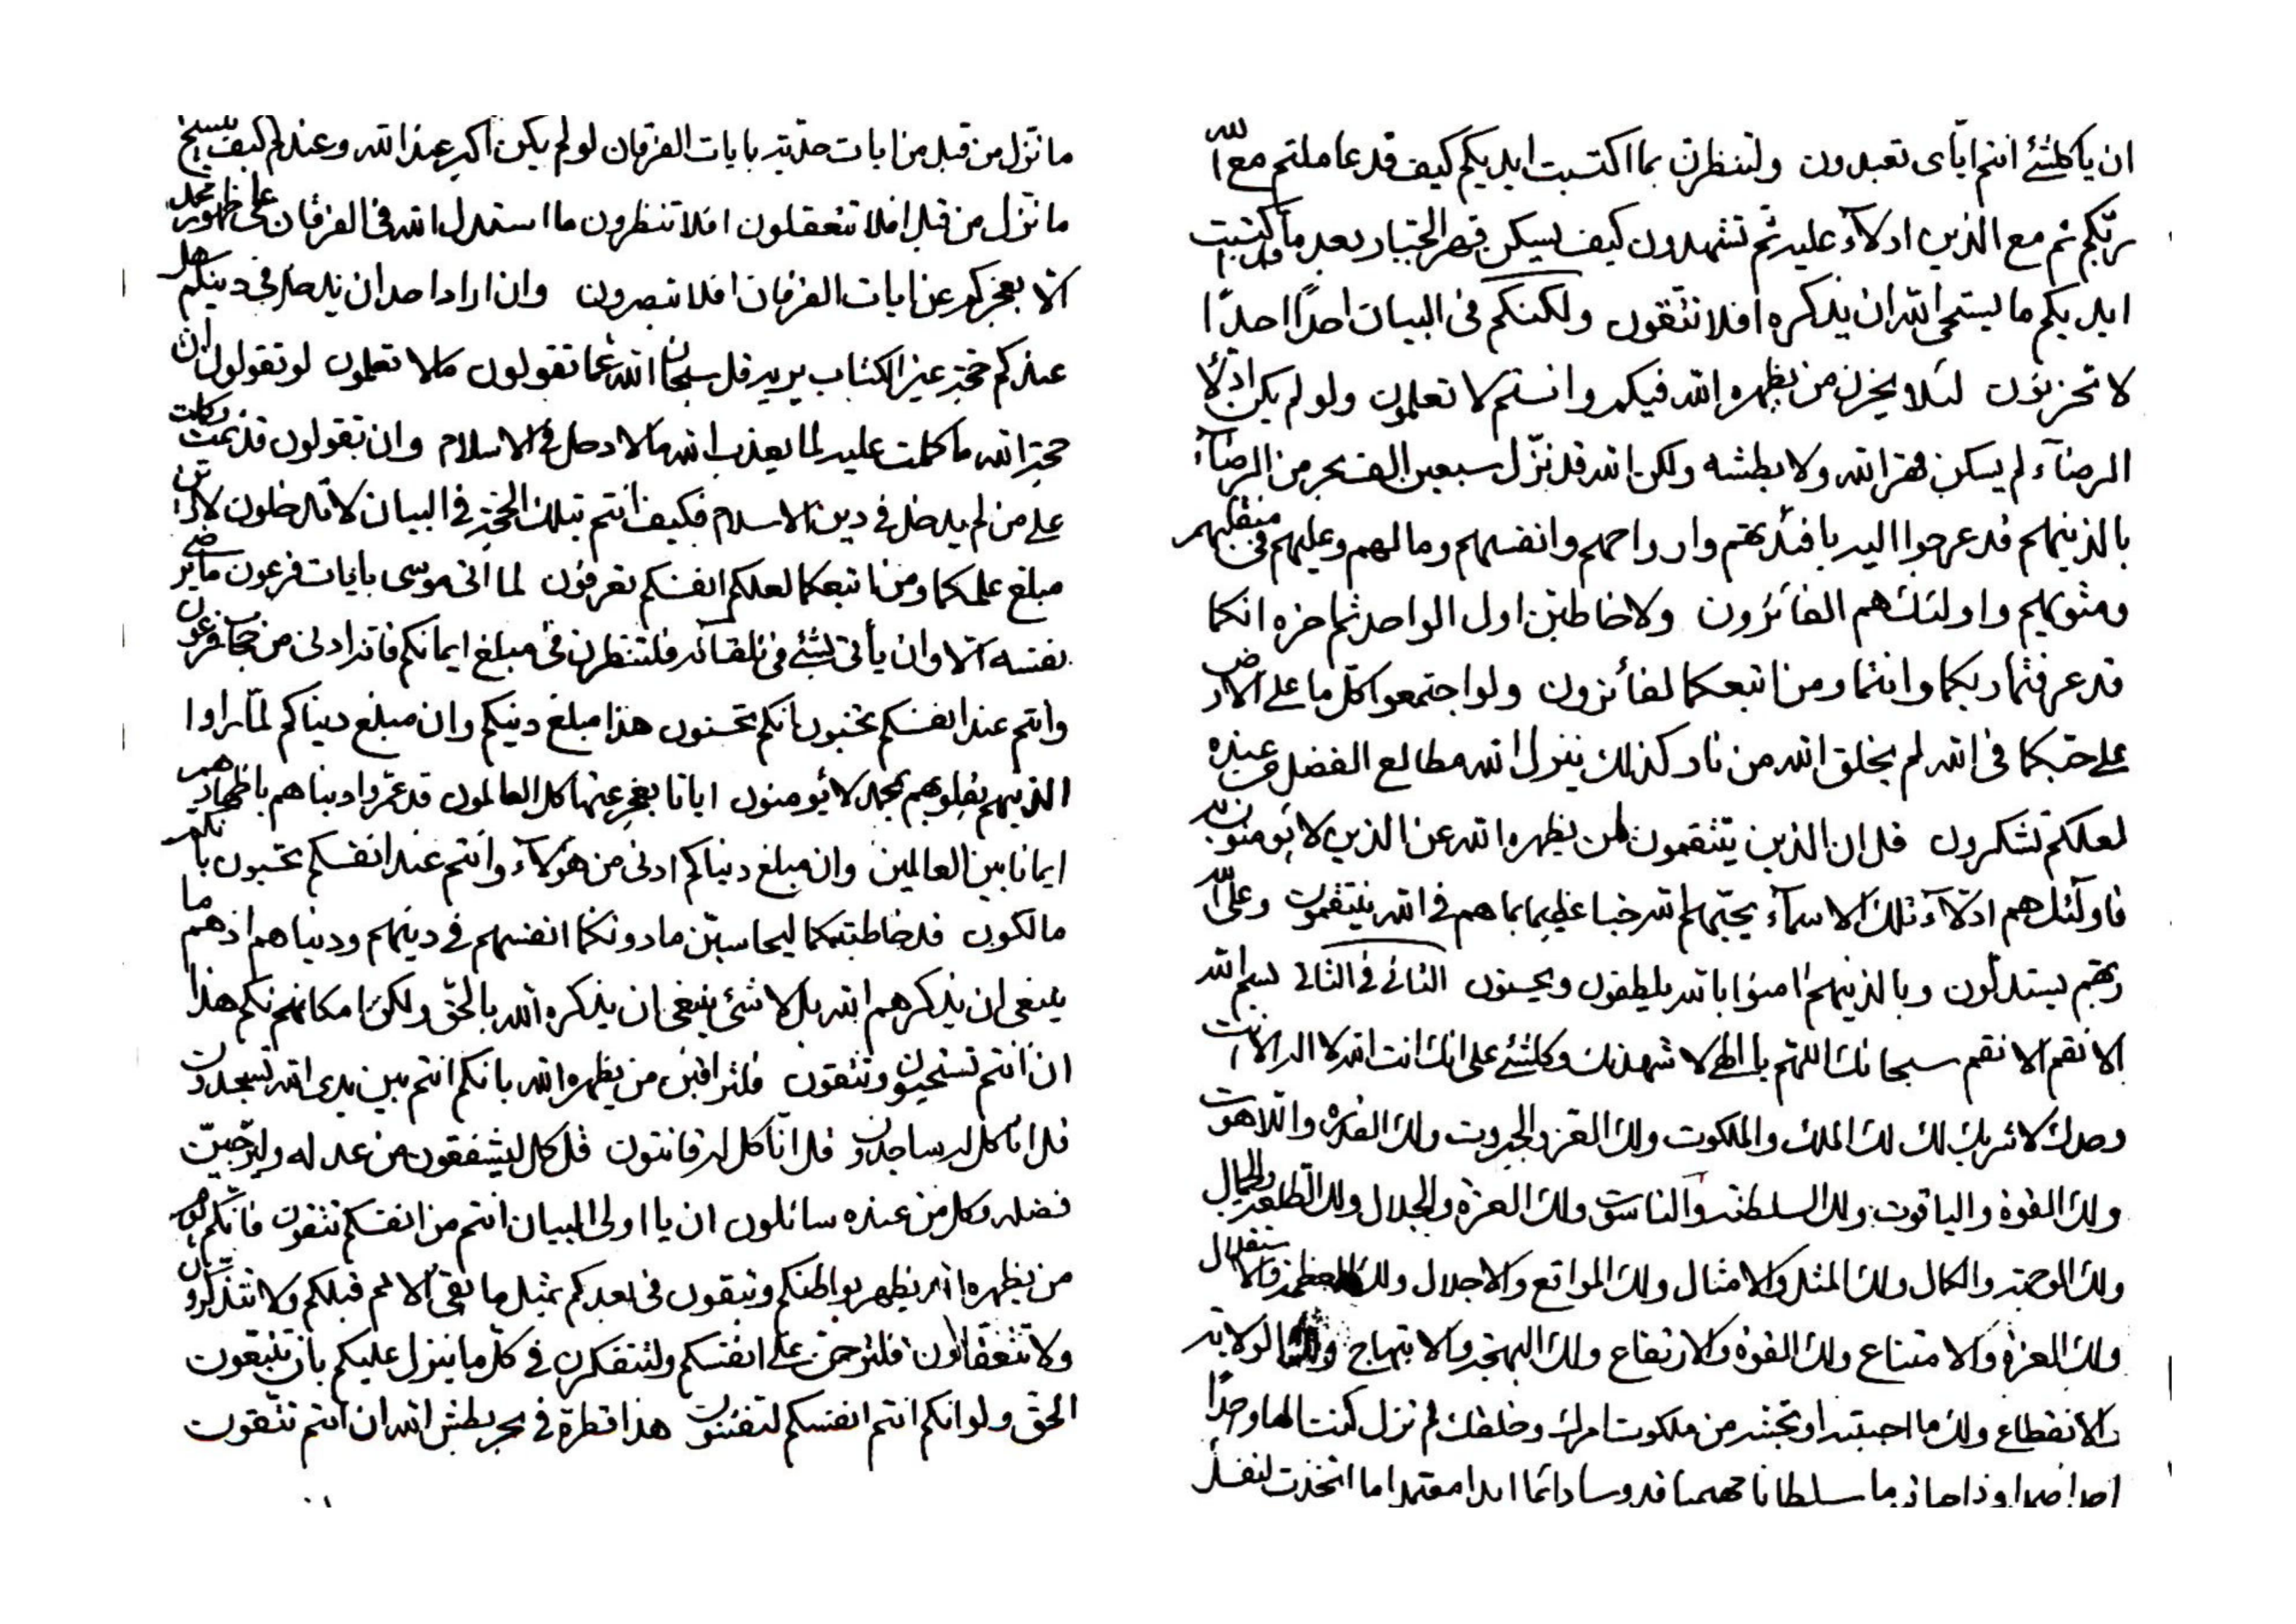 ان يا كلشئ انتم اياى تعبدون ولتنظرن بما اكتسبت ايديكم كيف قد عاملتم مع الله
ربكم ثم مع الذين ادلاء عليه ثم تشهدون كيف يسكن قهر الجبار بعد ما قد اكتسبت
ايديكم ما يستحى الله ان يذكره افلا تتقون ولكنكم فى البيان احدًا احدًا
لا تحزنون لئلا يحزن من يظهره الله فيكم وانتم لا تعلمون ولو لم يكن ادلاء
الرضاء لم يسكن قهر الله ولا بطشه ولكن الله قد نزل سبعين الف بحر من الرضاء
بالذينهم قد عرجوا اليه بافئدتهم وارواحهم وانفسهم ومالهم وعليهم فى منقلبهم
ومثويهم واولئك هم الفائزون ولاخاطبن اول الواحد ثم اخره انكما
قد عرفتما ربكما وانتما ومن اتبعكما لفائزون ولو اجتمعوا كل ما على الارض
على حبكما فى الله لم يخلق الله من نار كذلك ينزل الله مطالع الفضل من عنده
لعلكم تشكرون قل ان الذين ينتقمون لمن يظهره الله عن الذين لا يؤمنون به
فاولئك هم ادلاء تلك الاسماء يحبهم الله حبا عظيما بما هم فى الله ينتقمون وعلى الله
ربهم يستدلون وبالذينهم امنوا بالله يلطفون ويحسنون الثانى فى الثانى بسم الله
الانقم الانقم سبحانك اللهم يا الهى لاشهدنك وكلشئ على انك انت الله لا اله الا انت
وحدك لا شريك لك لك الملك والملكوت ولك العز والجبروت ولك القدرة واللاهوت
ولك القوة والياقوت ولك السلطنة والناسوت ولك العزة والجلال ولك الطلعة والجمال
ولك الوجهة والكمال ولك المثل والامثال ولك المواقع والاجلال ولك العظمة والاستقلال
ولك العزة والامتناع ولك القوة والارتفاع ولك البهجة والابتهاج ولك الولاية
والانقطاع ولك ما احببته او تحبنه من ملكوت امرك وخلقك لم تزل كنت الها واحدًا
احدا صمدا وترا حيا قيوما سلطانا مهيمنا قدوسا دائما ابدا معتمدا ما اتخذت لنفسك
ما نزل من قبل من ايات حدته بايات الفرقان لو لم يكن اكبر عند الله وعندكم كيف ينسخ
ما نزل من قبل افلا تتعقلون افلا تنظرون ما استدل الله فى الفرقان على ظهور محمد
الا بعجزكم عن ايات الفرقان افلا تبصرون وان اراد احد ان يدخل فى دينكم هل
عندكم حجة غير الكتاب يريه قل سبحان الله عما تقولون ما لا تعلمون لو تقولون ان
حجة الله ما كملت عليه لما يعذب الله ما لا دخل فى الاسلام وان تقولون قد تمت وكملت
على من لم يدخل فى دين الاسلام فكيف انتم بتلك الحجة فى البيان لا تدخلون لارين
مبلغ علمكما ومن اتبعكما لعلكم انفسكم تعرفون لما اتى موسى بايات فرعون ما يرضى
بنفسه الا وان يأتى بشئ فى تلقائه فلتنظرن فى مبلغ ايمانكم فانه ادنى من حجاب فرعون
وانتم عند انفسكم تحسبون انكم تحسنون هذا مبلغ دينكم وان مبلغ دنياكم لما راوا
الذينهم بقلوبهم بمحمد لا يؤمنون ايانا يعجز عنها كل العالمون قد عمروا دنياهم باظهارهم
ايمانا بين العالمين وان مبلغ دنياكم ادنى من هؤلاء وانتم عند انفسكم تحسبون بانكم
مالكون قد خاطبتكما ليحاسبن ما دونكما انفسهم فى دينهم ودنياهم اذ هم ما
ينبغى ان يذكرهم الله بل لا شئ ينبغى ان يذكره الله بالحق ولكن امكانهم نكم هذا
ان انتم تستحيون وتتقون فلتراقبن من يظهره الله بانكم انتم بين يدى الله تسجدون
قل انا كل له ساجدون قل انا كل له قانتون قل كل ليشفقون من عدله وليرجين
فضله وكل من عنده سائلون ان يا اولى البيان انتم من انفسكم تتقون فانكم لو
من يظهره الله يظهر بواطنكم وتبقون فى بعدكم بمثل ما بقى الامم قبلكم ولا تتذكرون
ولا تتعقلون فلترحمن على انفسكم ولتتفكرن فى كل ما ينزل عليكم بان تتبعون
الحق ولو انكم انتم انفسكم لتفنون هذا قطرة فى بحر بطش الله ان انتم تتقون